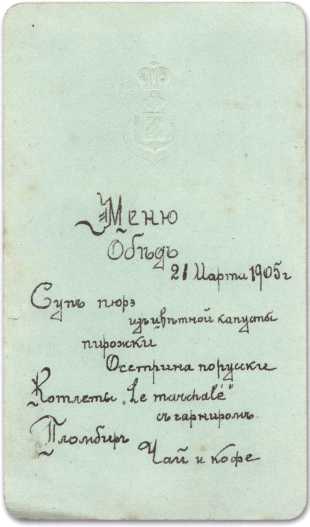 Меню
Обѣдъ
21 Марта 1905 г
Супъ пюрэ
изъ цвѣтной капусты
пирожки
Осетрина порусски
Котлеты „Le marchalé“
съ гарниромъ
Пломбиръ
Чай и кофе